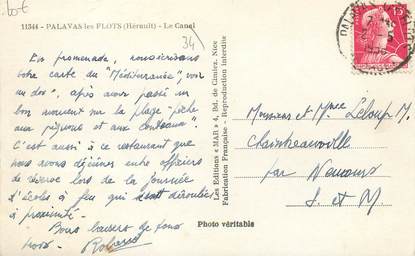 11344 - PALAVAS les FLOTS (Hérault) - Le Canal
34
En promenade, nous écrivons
votre carte du "Méditerranée", voir
au dos, après avoir passé un
bon moment sur la plage "pêche
aux pignons et aux couteaux"
C'est aussi à ce restaurant que
nous avons déjeuner entre officiers
de réserve lors de la journée
d'écoles à feu qui s'est
à proximité.
Bons baisers de tous
trois.
Les Editions "MAR" 4, Bd. de Cimiez, Nice
Fabrication Française - Reproduction Interdite
Photo véritable
15
Messieurs et Mmes Leloup M.
Chaintreauville
par Nemours
S. et M.